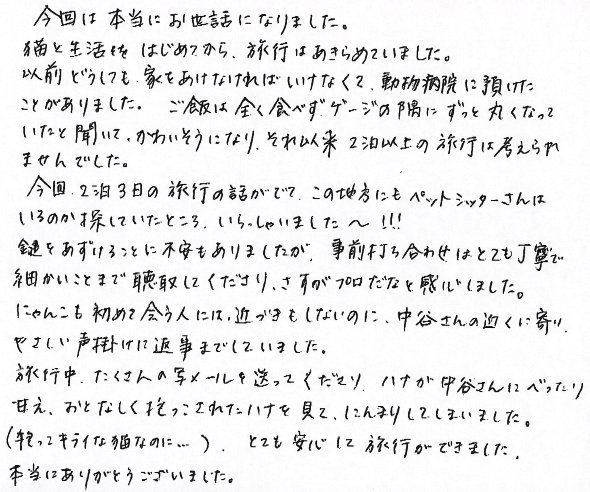 今回は本当にお世話になりました。
猫と生活をはじめてから、旅行はあきらめていました。
以前どうしても家をあけなければいけなくて、動物病院に預けた
ことがありました。 ご飯は全く食べず、ゲージの隅にずっと丸くなって
いたと聞いて、かわいそうになり、それ以来2泊以上の旅行は考えられ
ませんでした。
今回、2泊3日の旅行の話がでて、この地方にもペットシッターさんは
いるのか探していたところ、いらっしゃいました〜!!!
鍵をあずけることに不安もありましたが、事前打ち合わせはとても丁寧で
細かいことまで聴取してくださり、さすがプロだなと感じました。
にゃんこも初めて会う人には、近づきもしないのに、中谷さんの近くに寄り、
やさしい声掛けに返事までしていました。
旅行中、たくさんの写メールを送ってくださり、ハナが中谷さんにべったり
甘え、おとなしく抱っこされたハナを見て、にんまりしてしまいました。
(抱っこキライな猫なのに…)、とても安心して旅行ができました。
本当にありがとうございました。